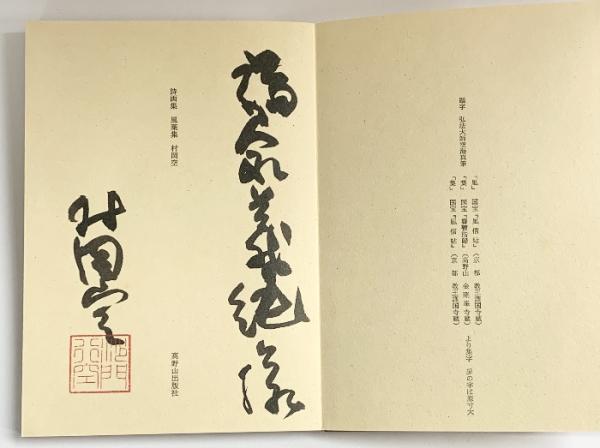 題字 弘法大師空海真筆
『風』 国宝『風信帖』（京都 教王護国寺蔵）
『葉』 国宝『聾瞽指帰』（高野山 金剛峯寺蔵）
『集』 国宝『風信帖』（京都 教王護国寺蔵）
より集字 扉の字は原寸大
義純様
詩画集 風葉集 村岡空
村岡空
高野山出版社
沙門
行空